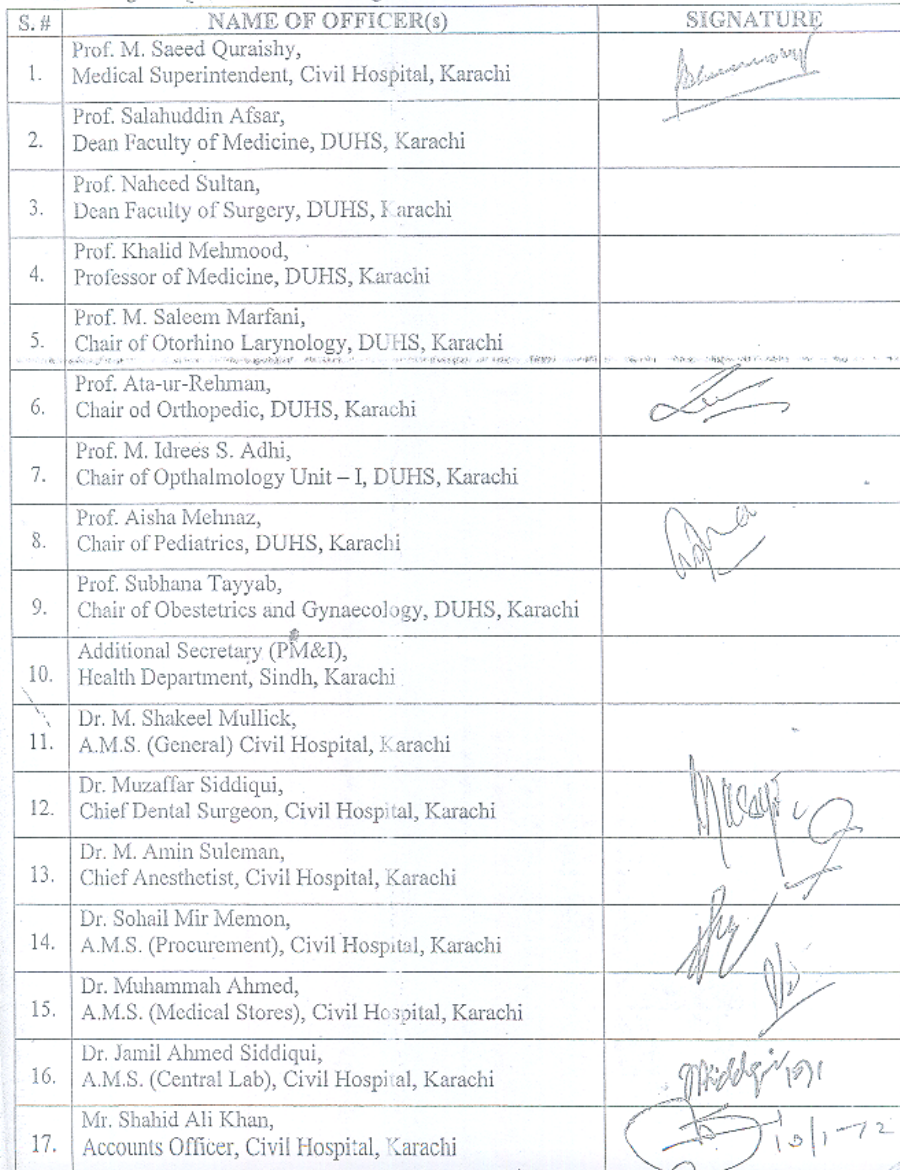 S. # NAME OF OFFICER(s) SIGNATURE
1. Prof. M. Saeed Quraishy,
Medical Superintendent, Civil Hospital, Karachi
2. Prof. Salahuddin Afsar,
Dean Faculty of Medicine, DUHS, Karachi
3. Prof. Naheed Sultan,
Dean Faculty of Surgery, DUHS, Karachi
4. Prof. Khalid Mehmood,
Professor of Medicine, DUHS, Karachi
5. Prof. M. Saleem Marfani,
Chair of Otorhino Larynology, DUHS, Karachi
6. Prof. Ata-ur-Rehman,
Chair od Orthopedic, DUHS, Karachi
7. Prof. M. Idrees S. Adhi,
Chair of Opthalmology Unit – I, DUHS, Karachi
8. Prof. Aisha Mehnaz,
Chair of Pediatrics, DUHS, Karachi
9. Prof. Subhana Tayyab,
Chair of Obestetrics and Gynaecology, DUHS, Karachi
10. Additional Secretary (PM&I),
Health Department, Sindh, Karachi
11. Dr. M. Shakeel Mullick,
A.M.S. (General) Civil Hospital, Karachi
12. Dr. Muzaffar Siddiqui,
Chief Dental Surgeon, Civil Hospital, Karachi
13. Dr. M. Amin Suleman,
Chief Anesthetist, Civil Hospital, Karachi
14. Dr. Sohail Mir Memon,
A.M.S. (Procurement), Civil Hospital, Karachi
15. Dr. Muhammah Ahmed,
A.M.S. (Medical Stores), Civil Hospital, Karachi
16. Dr. Jamil Ahmed Siddiqui,
A.M.S. (Central Lab), Civil Hospital, Karachi
17. Mr. Shahid Ali Khan,
Accounts Officer, Civil Hospital, Karachi